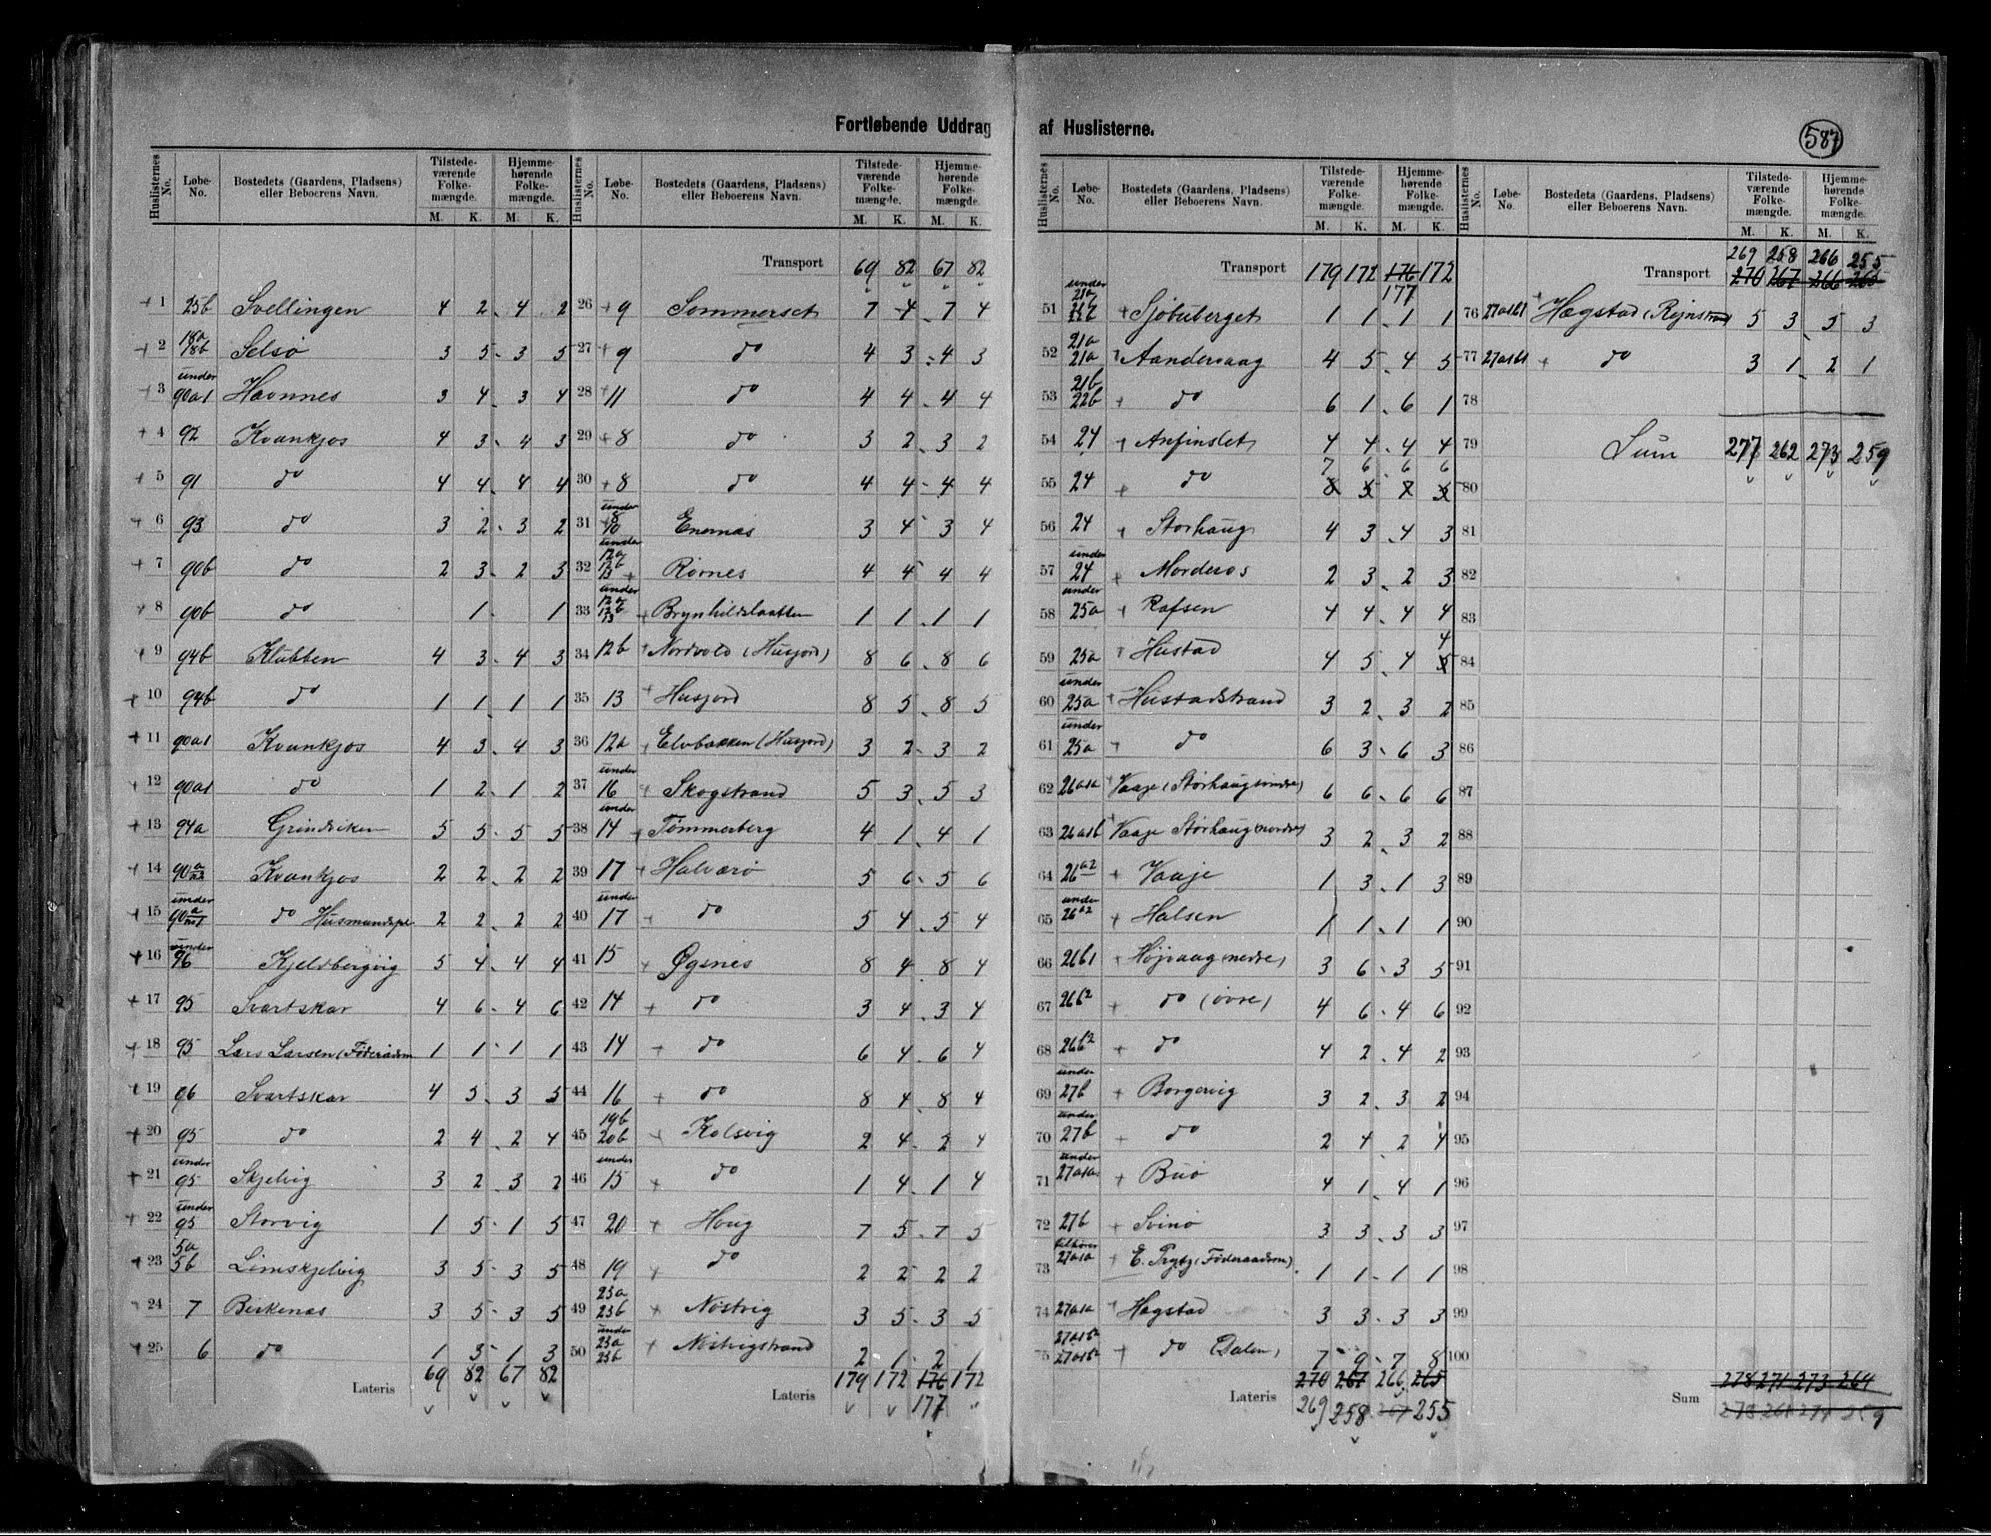 Fortløbende Uddrag af Huslisterne.
587
Huslisternes No. Løbe-No. Bostedets (Gaardens, Pladsens) eller Beboerens Navn. Tilstedeværende Folkemængde. M. K. Hjemmehørende Folkemængde. M. K.
1 25b Svellingen 4 2 4 2
2 18a 18b Selsö 3 5 3 5
3 under 90a1 Havnnes 3 4 3 4
4 92 Kvankjos 4 3 4 3
5 91 do 4 4 4 4
6 93 do 3 2 3 2
7 90b do 2 3 2 3
8 90b do 1 1
9 94b Klubben 4 3 4 3
10 94b do 1 1 1 1
11 90a1 Kvankjos 4 3 4 3
12 90a1 do 1 2 1 2
13 94a Grindviken 5 5 5 5
14 90 a/a2 Kvankjos 2 2 2 2
15 under 90 do Husmandspl 2 2 2 2
16 under 96 Kjeldbergvig 5 4 4 4
17 95 Svartskar 4 6 4 6
18 95 Lars Larsen (Föderaadsm 1 1 1 1
19 96 Svartskar 4 5 3 5
20 95 do 2 4 2 4
21 under 95 Skjelvig 3 2 3 2
22 under 95 Storvig 1 5 1 5
23 5a 5b Limskjelvig 3 5 3 5
24 7 Birkenæs 3 5 3 5
25 6 do 1 3 1 3
Lateris 69 82 67 82
Huslisternes No. Løbe-No. Bostedets (Gaardens, Pladsens) eller Beboerens Navn. Tilstedeværende Folkemængde. M. K. Hjemmehørende Folkemængde. M. K.
Transport 69 82 67 82
26 9 Sommerset 7 4 7 4
27 9 do 4 3 4 3
28 11 do 4 4 4 4
29 8 do 3 2 3 2
30 8 do 4 4 4 4
31 under 8 10 Enernæs 3 4 3 4
32 under 12a 12b 13 Rörnes 4 4 4 4
33 under 12a 12b 13 Brynhildslaatten 1 1 1 1
34 12b Nordvold (Husjord) 8 6 8 6
35 13 Husjord 8 5 8 5
36 12a Elvbakken (Husjord) 3 2 3 2
37 under 16 Skogstrand 5 3 5 3
38 under 14 Tömmerberg 4 1 4 1
39 17 Halvarö 5 6 5 6
40 under 17 do 5 4 5 4
41 15 Øgsnes 8 4 8 4
42 14 do 3 4 3 4
43 14 do 6 4 6 4
44 16 do 8 4 8 4
45 19b 20b Kolsvig 2 4 2 4
46 under 15 do 1 4 1 4
47 20 Houg 7 5 7 5
48 19 do 2 2 2 2
49 23a 23b Nöstvig 3 5 3 5
50 under 23a 23b Nöstvigstrand 2 1 2 1
Lateris 179 172 176 172
177
Huslisternes No. Løbe-No. Bostedets (Gaardens, Pladsens) eller Beboerens Navn. Tilstedeværende Folkemængde. M. K. Hjemmehørende Folkemængde. M. K.
Transport 179 172 176 172
177
51 under 21a 22b Sjöbuberget 1 1 1 1
52 21a 21a Aandervaag 4 5 4 5
53 21b 22b do 6 1 6 1
54 24 Anfinslet 4 4 4 4
7 6 6 6
55 24 do 8 5 7 5
56 24 Storhaug 4 3 4 3
57 under 24 Morderos 2 3 2 3
58 under 25a Rafsen 4 4 4 4
4
59 25a Hustad 4 5 4 5
60 under 25a Hustadstrand 3 2 3 2
61 under 25a do 6 3 6 3
62 26a1a Vaaje (Störhaug nedre) 6 6 6 6
63 26a1b Vaaje Störhaug (nordre) 3 2 3 2
64 26a2 Vaaje 1 3 1 3
65 under 26a2 Halsen 1 1 1 1
66 26b1 Höjvaag (nedre) 3 6 3 5
67 26b2 do (övre) 4 6 4 6
68 26b2 do 4 2 4 2
69 under 27b Borgervig 3 2 3 2
70 under 27b do 2 4 2 4
71 under 27a1a Buö 4 1 4 1
72 27b Svinö 3 3 3 3
73 tilhörer 27a1a E. Prytz (Föderaadsm). 1 1 1 1
74 27a1a Hagstad 3 3 3 3
75 27a1b2 27a1b2 do Dalen) 7 9 7 8
Lateris 270 267 266 265
269 258 267 255
Huslisternes No. Løbe-No. Bostedets (Gaardens, Pladsens) eller Beboerens Navn. Tilstedeværende Folkemængde. M. K. Hjemmehørende Folkemængde. M. K.
269 258 266 255
Transport 270 267 266 265
76 27a1b1 Hagstad (Rejnstrand 5 3 5 3
77 27a1b1 do 3 1 2 1
78
79 Sum 277 262 273 259
80
81
82
83
84
85
86
87
88
89
90
91
92
93
94
95
96
97
98
99
100
278 271 273 264
Sum 278 261 274 259